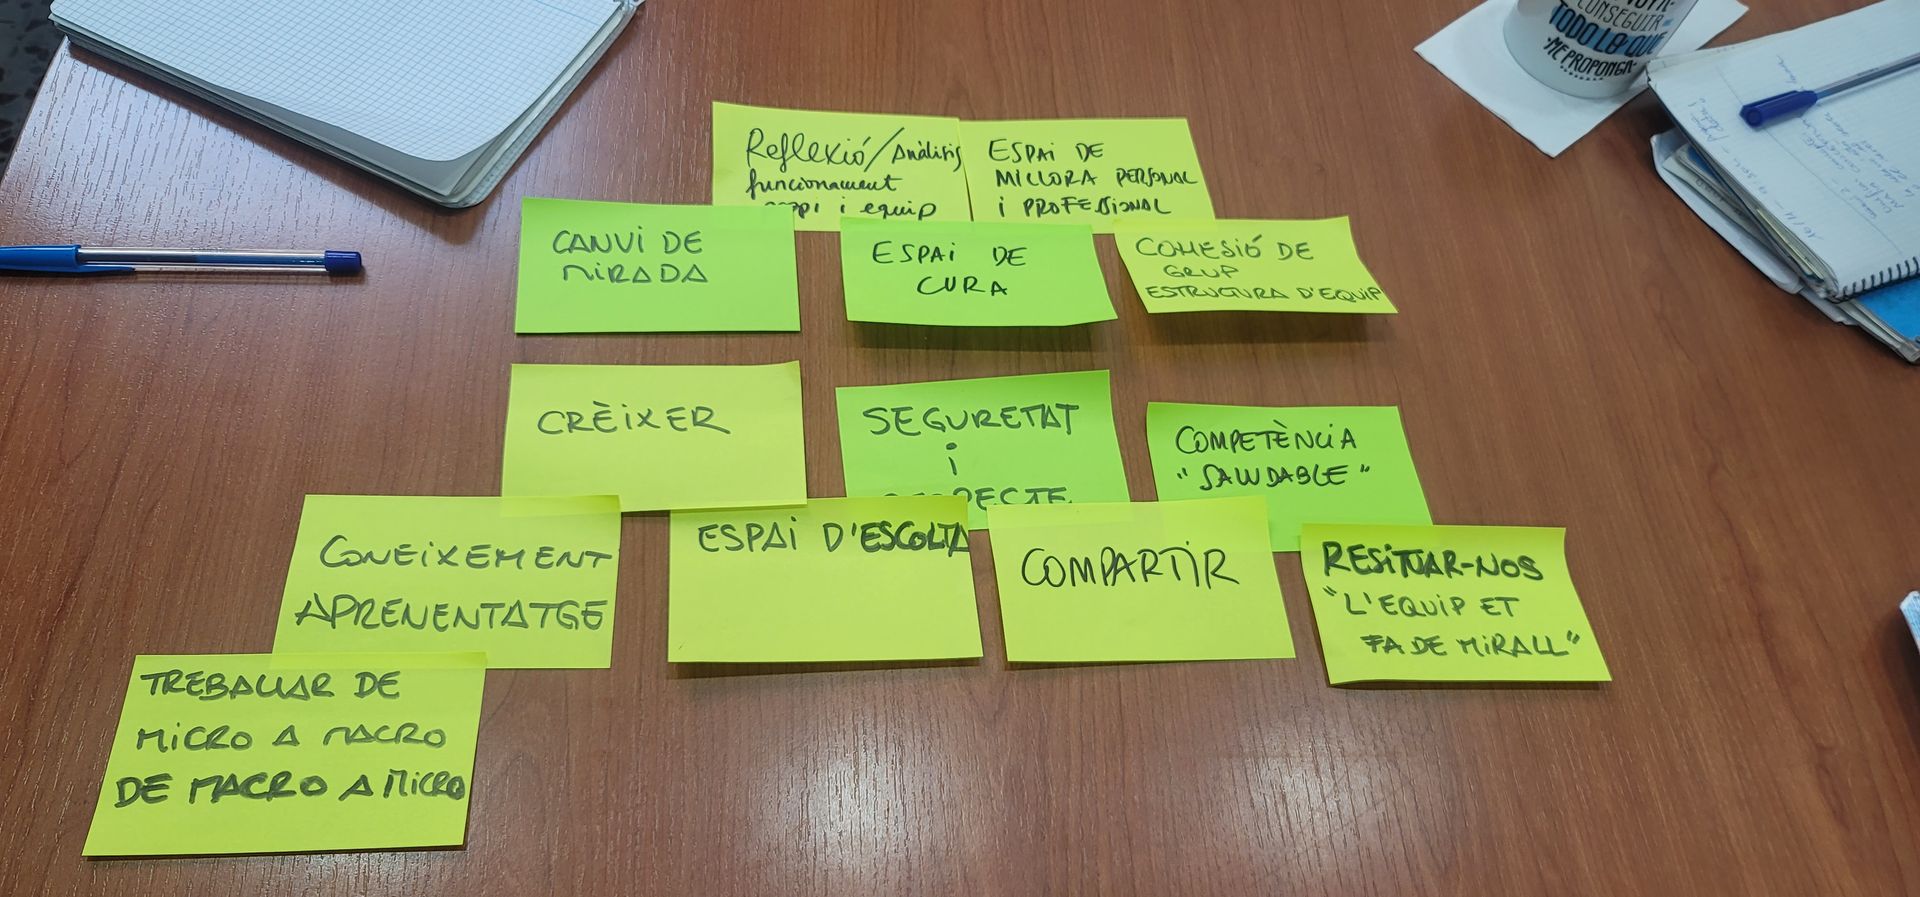 CONSEGUIR
TODO LO QUE
ME PROPONGA
Reflexió/Anàlisis
funcionament
i equip
ESPAI DE
MILLORA PERSONAL
I PROFESSIONAL
CANVI DE
MIRADA
ESPAI DE
CURA
COHESIÓ DE
GRUP
ESTRUCTURA D'EQUIP
CRÈIXER
SEGURETAT
i
COMPETÈNCIA
"SALUDABLE"
CONEIXEMENT
APRENENTATGE
ESPAI D'ESCOLTA
COMPARTIR
RESITUAR-NOS
"L'EQUIP ET
FA DE MIRALL"
TREBALLAR DE
MICRO A MACRO
DE MACRO A MICRO